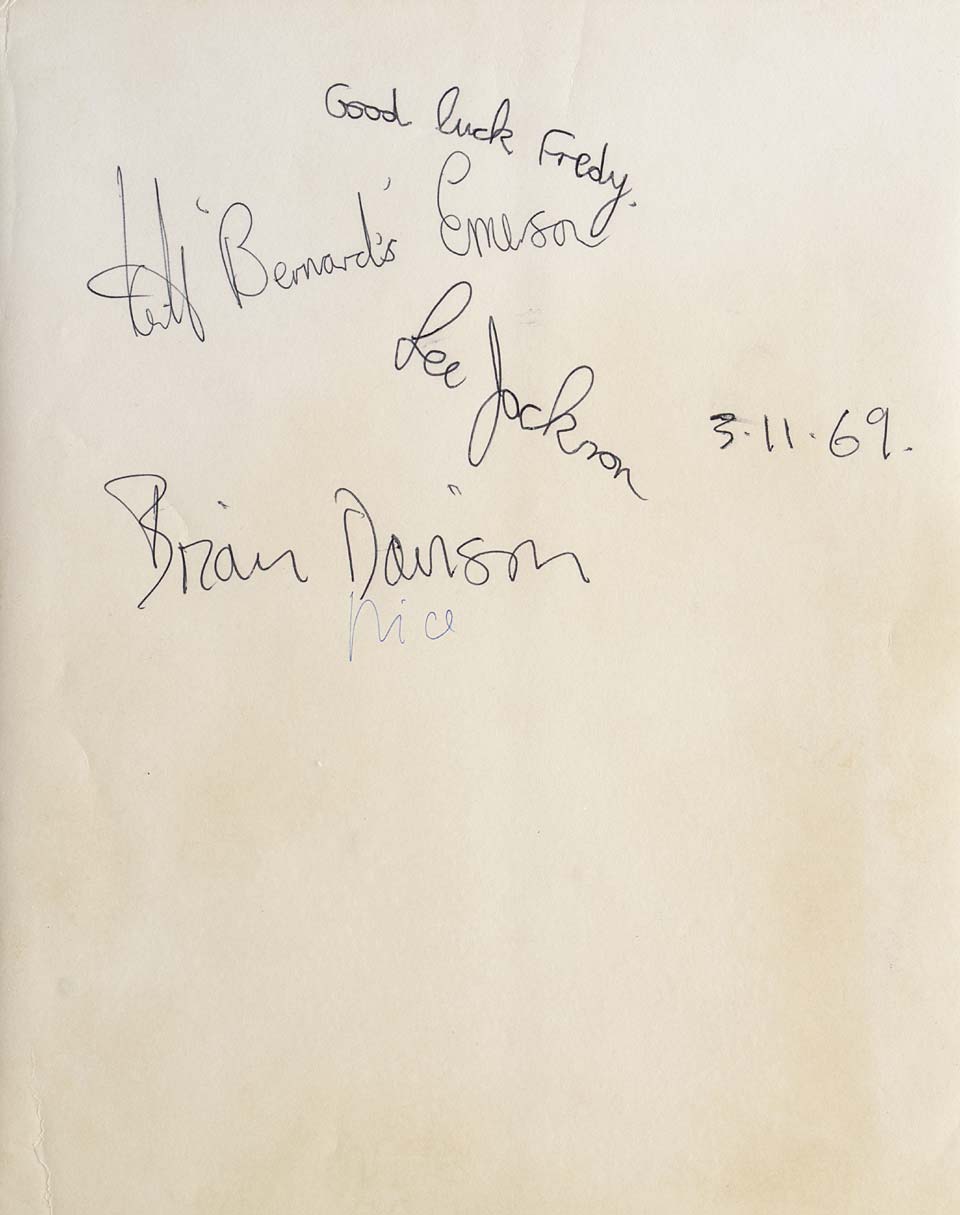 Good luck Fredy.
Keith 'Bernard's' Emerson
Lee Jackson
3.11.69.
Brian Davison
Nice